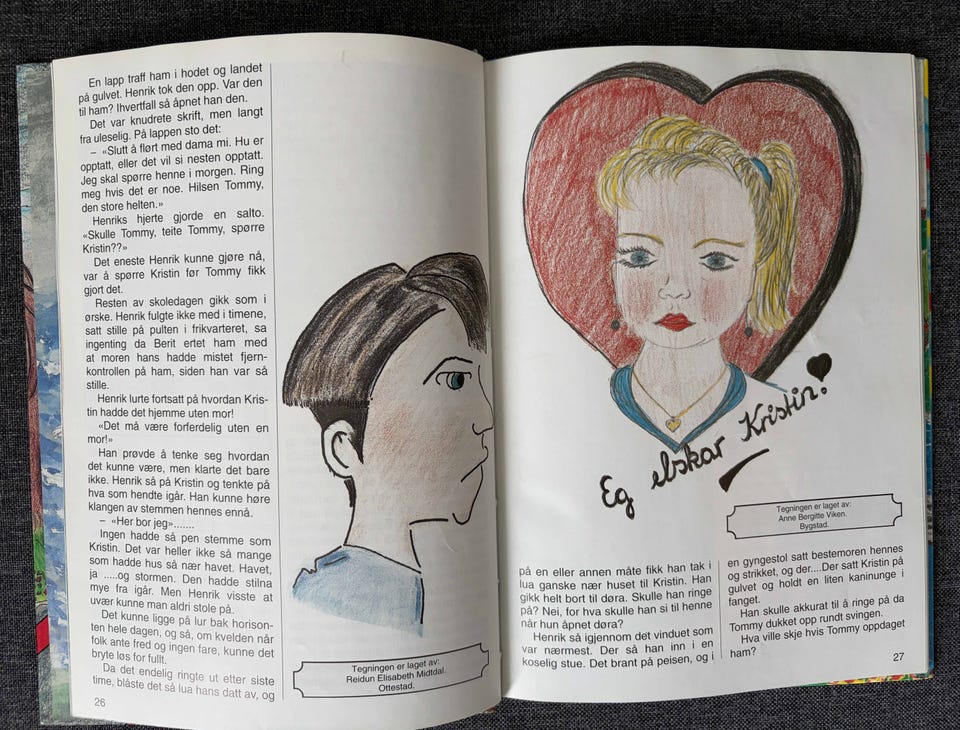 En lapp traff ham i hodet og landet
på gulvet. Henrik tok den opp. Var den
til ham? Ihvertfall så åpnet han den.
Det var knudrete skrift, men langt
fra uleselig. På lappen sto det:
– «Slutt å flørt med dama mi. Hu er
opptatt, eller det vil si nesten opptatt.
Jeg skal spørre henne i morgen. Ring
meg hvis det er noe. Hilsen Tommy,
den store helten.»
Henriks hjerte gjorde en salto.
«Skulle Tommy, teite Tommy, spørre
Kristin??»
Det eneste Henrik kunne gjøre nå,
var å spørre Kristin før Tommy fikk
gjort det.
Resten av skoledagen gikk som i
ørske. Henrik fulgte ikke med i timene,
satt stille på pulten i frikvarteret, sa
ingenting da Berit ertet ham med
at moren hans hadde mistet fjern-
kontrollen på ham, siden han var så
stille.
Henrik lurte fortsatt på hvordan Kris-
tin hadde det hjemme uten mor!
«Det må være forferdelig uten en
mor!»
Han prøvde å tenke seg hvordan
det kunne være, men klarte det bare
ikke. Henrik så på Kristin og tenkte på
hva som hendte igår. Han kunne høre
klangen av stemmen hennes ennå.
– «Her bor jeg».......
Ingen hadde så pen stemme som
Kristin. Det var heller ikke så mange
som hadde hus så nær havet. Havet,
ja .....og stormen. Den hadde stilna
mye fra igår. Men Henrik visste at
uvær kunne man aldri stole på.
Det kunne ligge på lur bak horison-
ten hele dagen, og så, om kvelden når
folk ante fred og ingen fare, kunne det
bryte løs for fullt.
Da det endelig ringte ut etter siste
time, blåste det så lua hans datt av, og
26
Tegningen er laget av:
Reidun Elisabeth Midtdal.
Ottestad.
Eg elskar Kristin!
Tegningen er laget av:
Anne Bergitte Viken.
Bygstad.
på en eller annen måte fikk han tak i
lua ganske nær huset til Kristin. Han
gikk helt bort til døra. Skulle han ringe
på? Nei, for hva skulle han si til henne
når hun åpnet døra?
Henrik så igjennom det vinduet som
var nærmest. Der så han inn i en
koselig stue. Det brant på peisen, og i
en gyngestol satt bestemoren hennes
og strikket, og der....Der satt Kristin på
gulvet og holdt en liten kaninunge i
fanget.
Han skulle akkurat til å ringe på da
Tommy dukket opp rundt svingen.
Hva ville skje hvis Tommy oppdaget
ham?
27